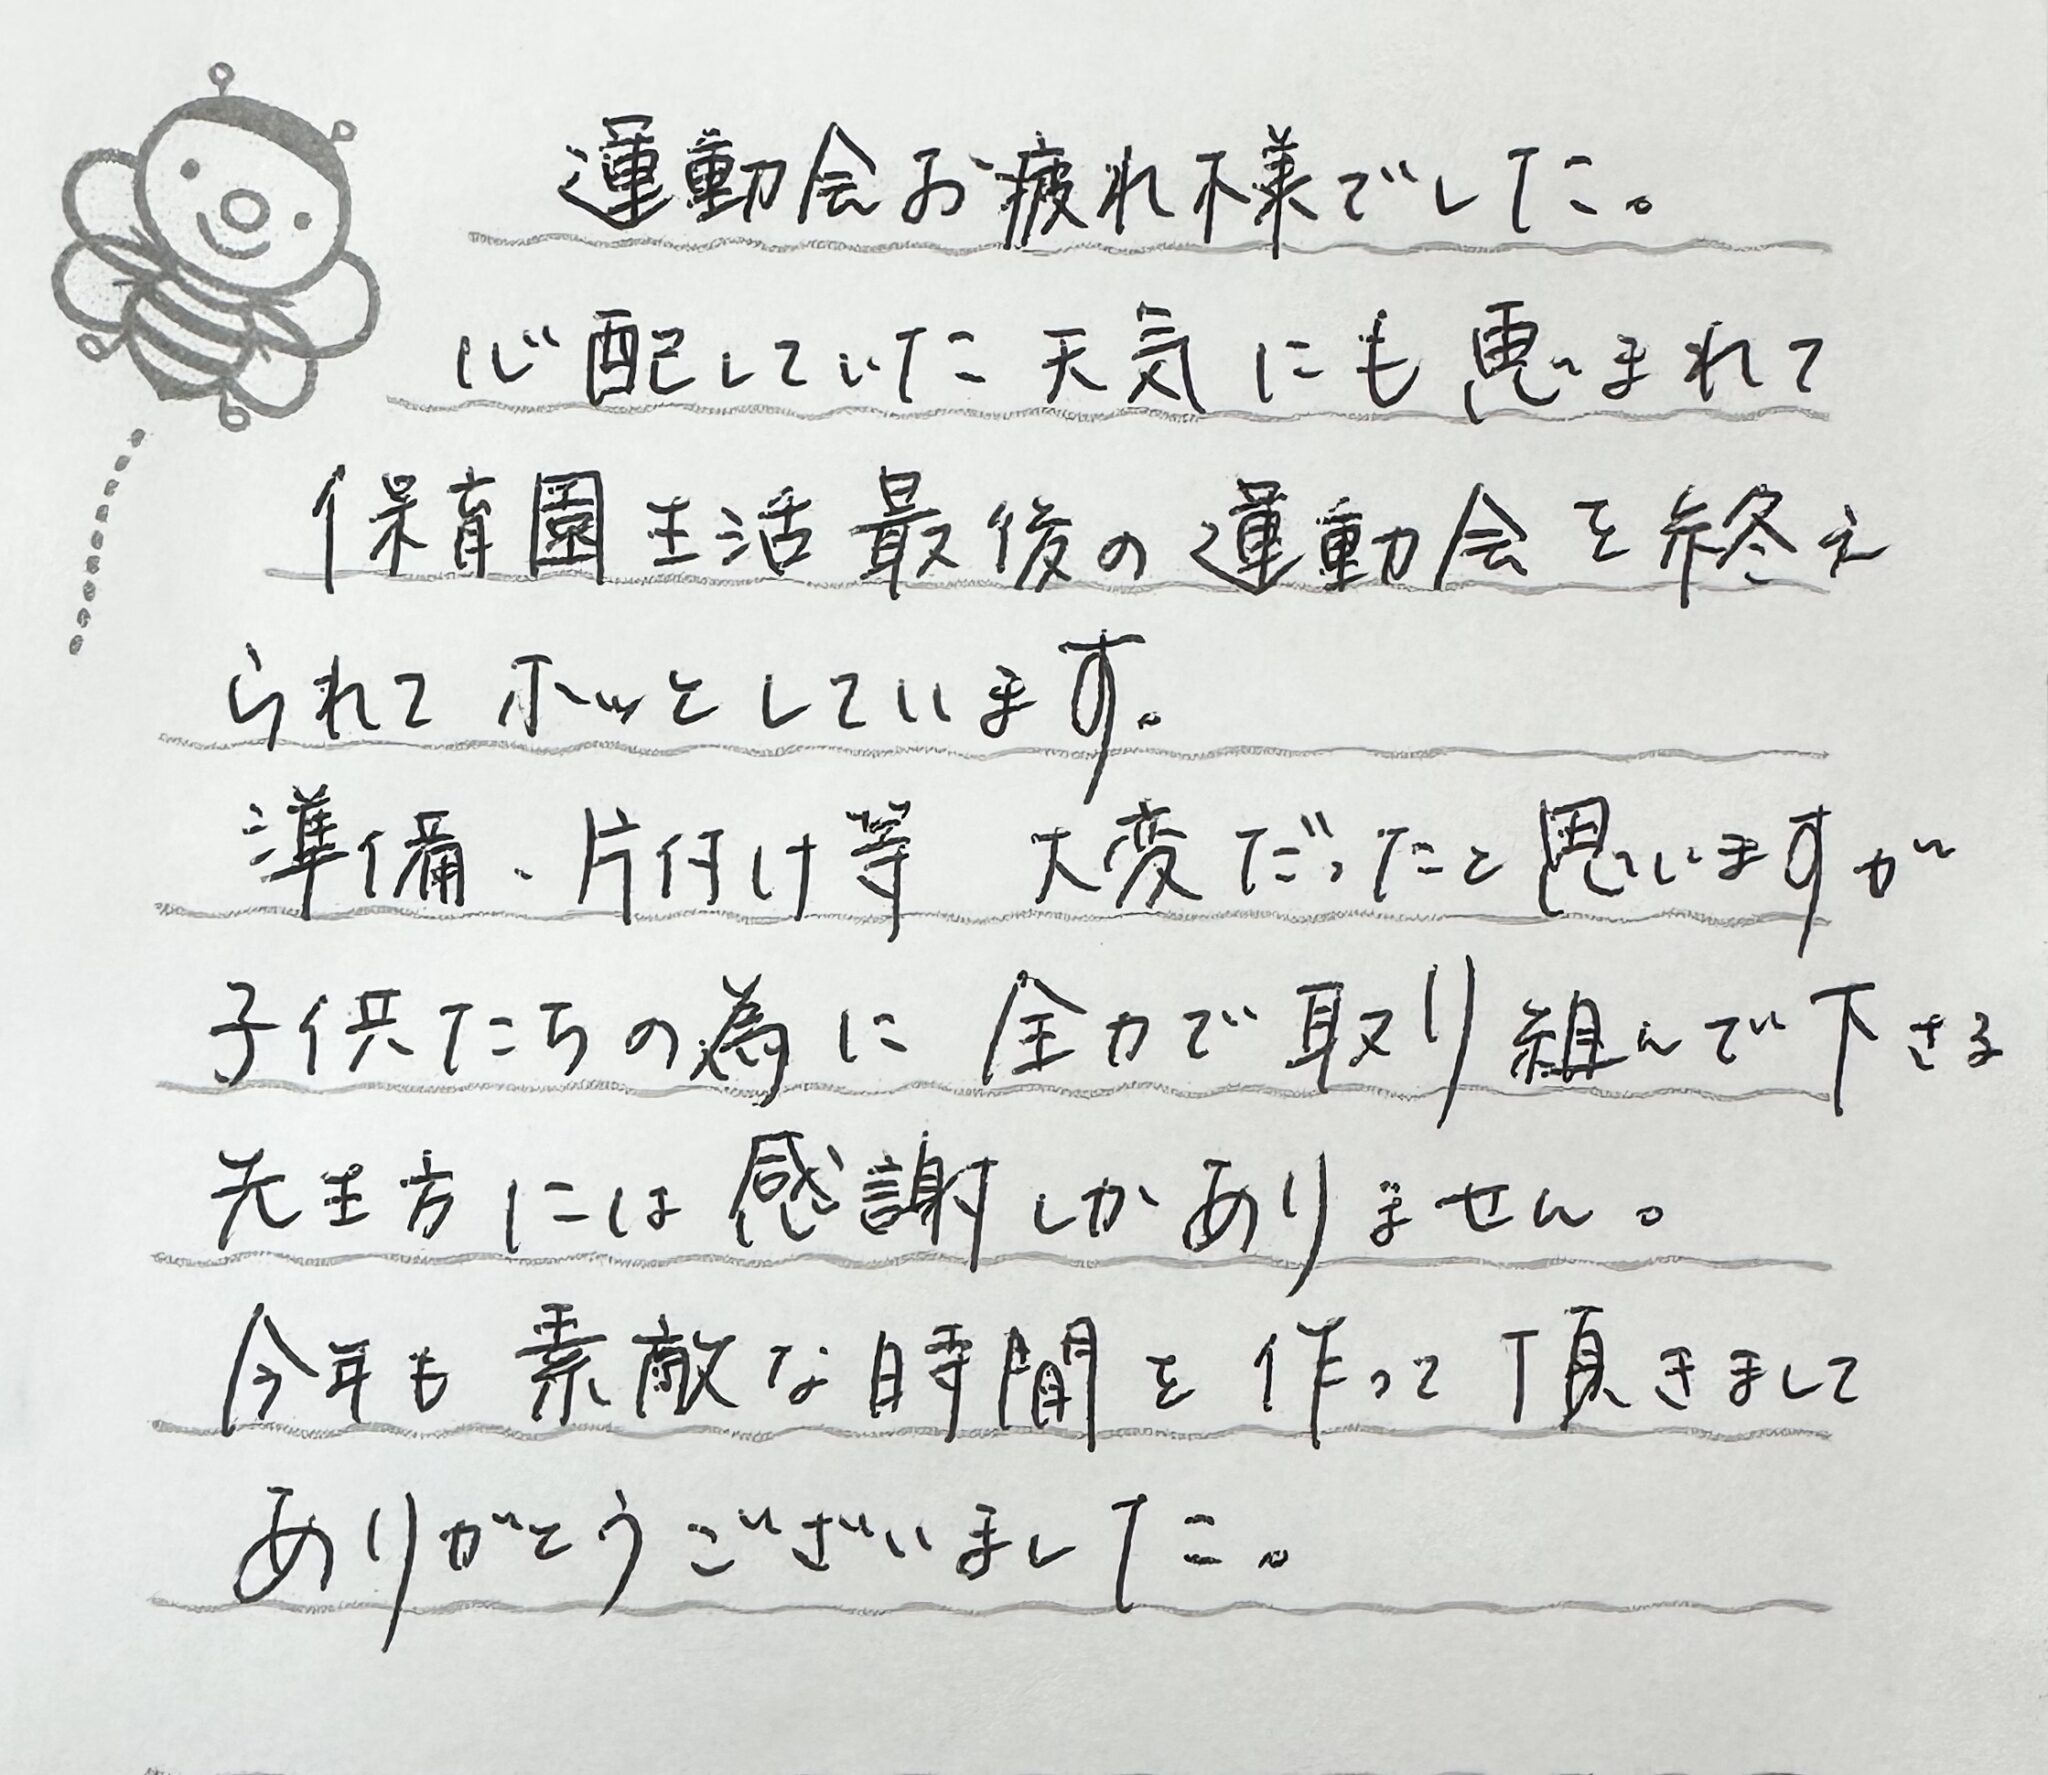 運動会お疲れ様でした。
心配していた天気にも恵まれて
保育園生活最後の運動会を終え
られてホッとしています。
準備・片付け等 大変だったと思いますが
子供たちの為に 全力で取り組んで下さる
先生方には感謝しかありません。
今年も素敵な時間を作って頂きまして
ありがとうございました。